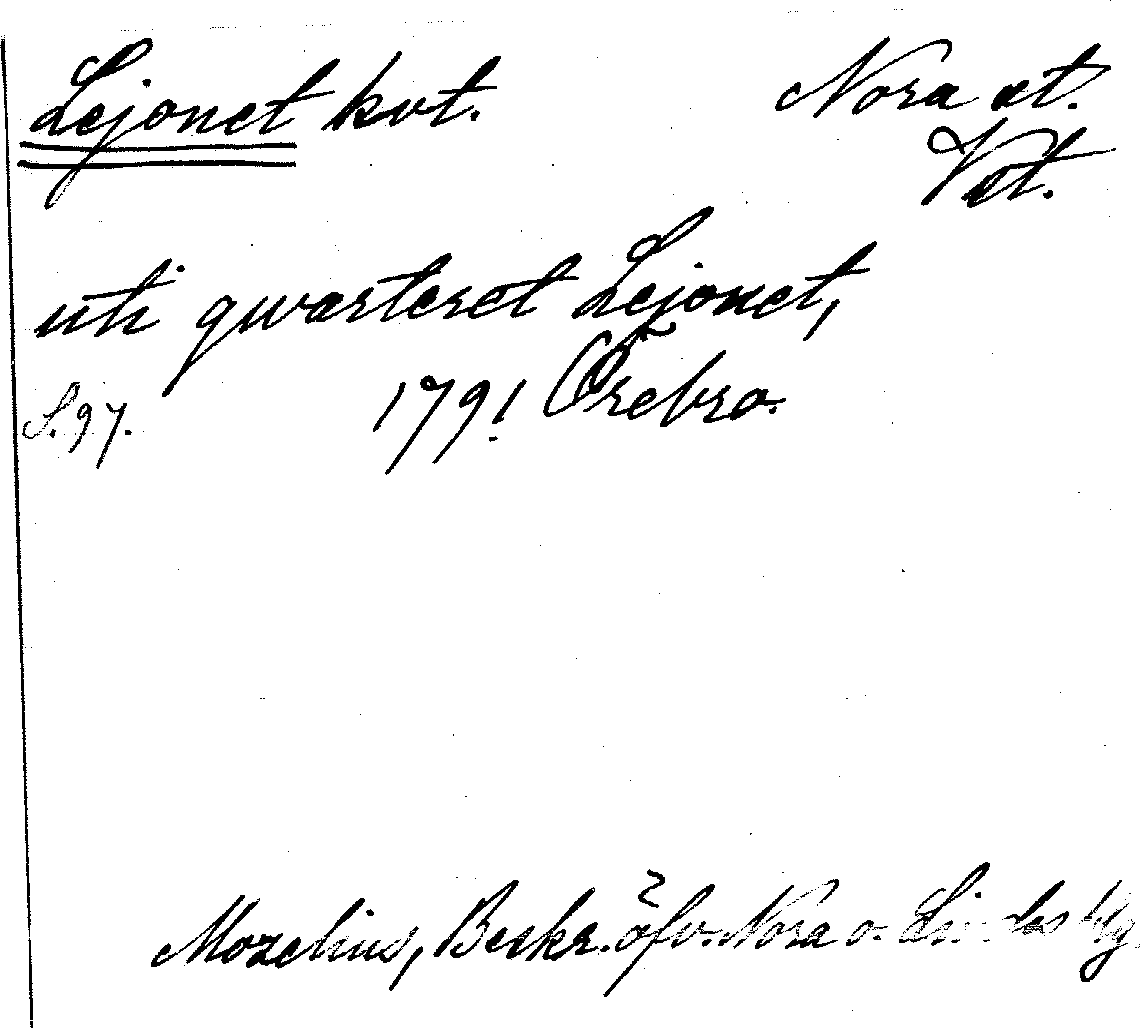 Lejonet kvt. Nora st.
Vst.
uti qwarteret Lejonet,
S. 97. 1791 Örebro.
Mozelius, Beskr. öfv. Nora o. Lindesblg